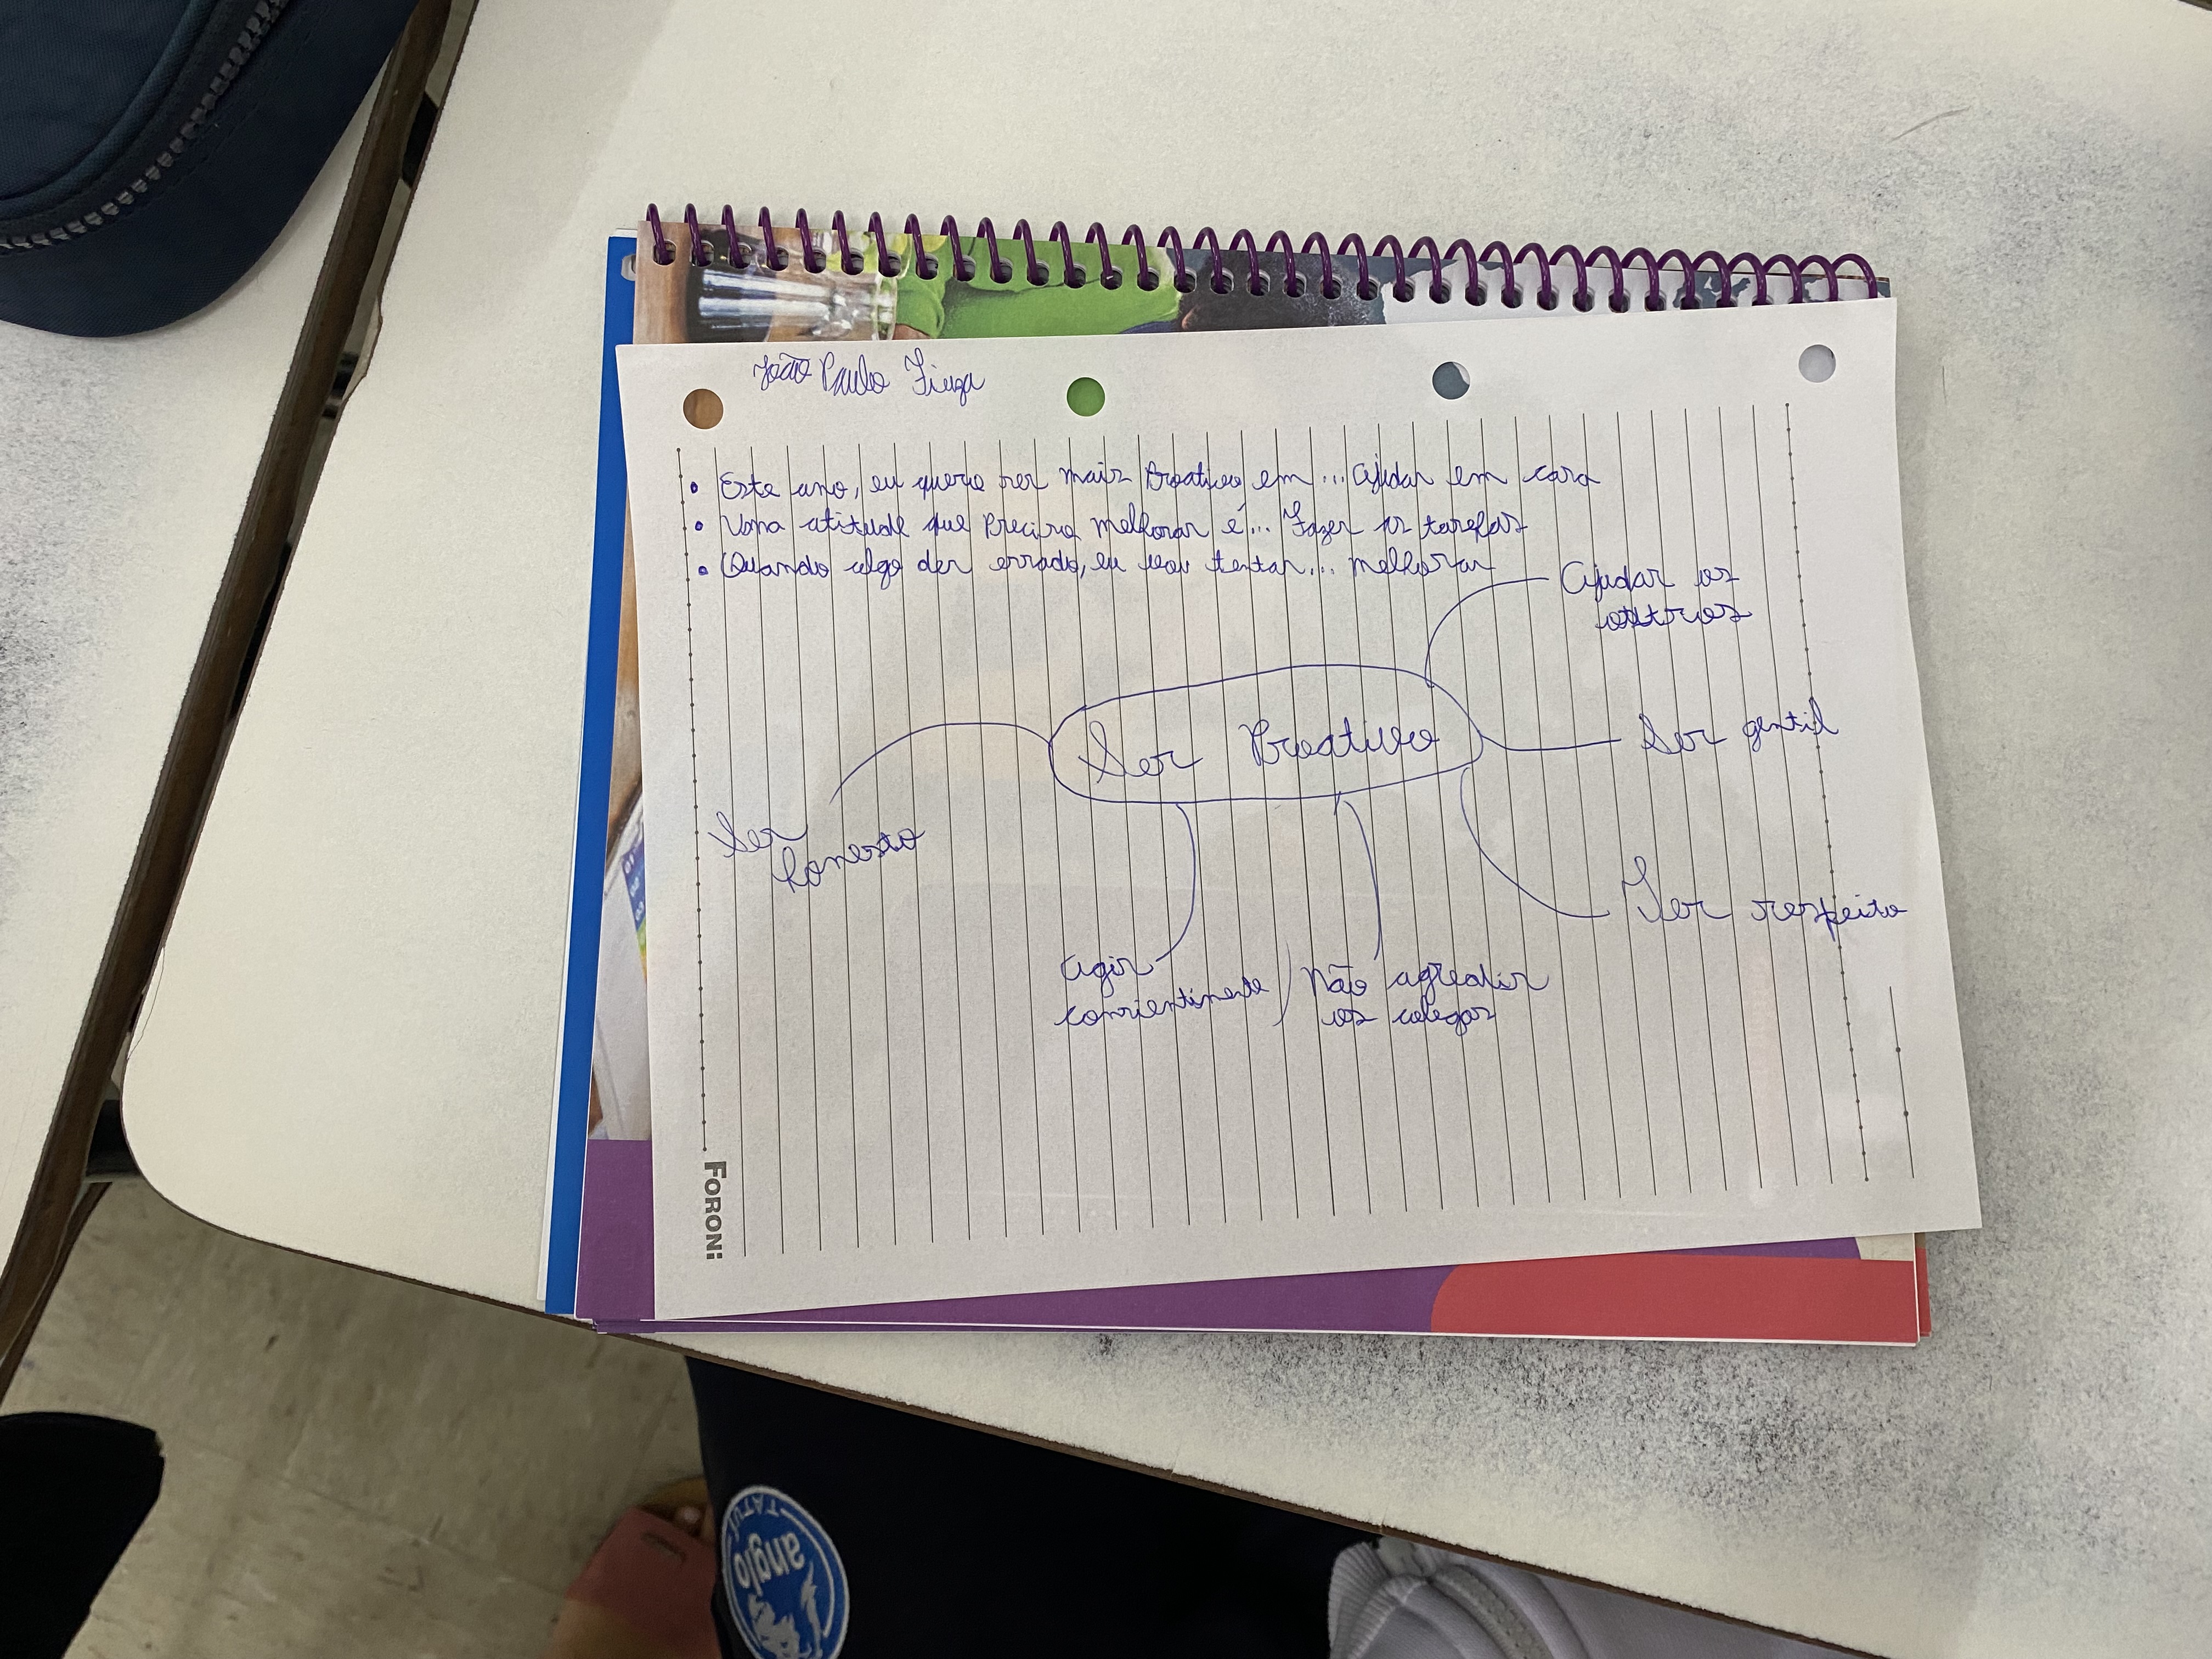 João Paulo Fiuza
• Este ano, eu quero ser mais Proativo em... Ajudar em casa
• Uma atitude que Preciso melhorar é... Fazer as tarefas
• Quando algo der errado, eu vou tentar... melhorar
Ajudar os
outros
Ser Proativo
Ser gentil
Ser
honesto
Ter respeito
Agir
consientimente
Não agredir
os colegas
FORONI
anglo
TATUÍ